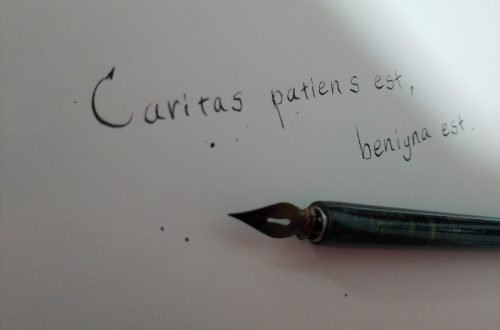 Caritas patiens est,
benigna est.